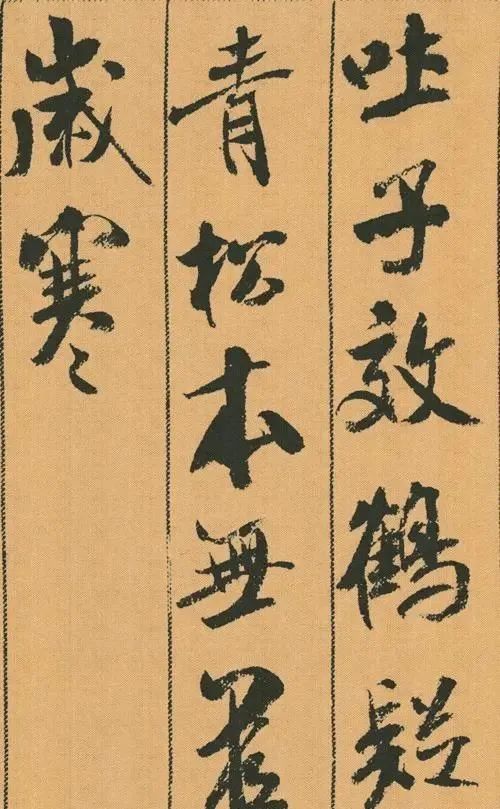 吐子效鶴疑
青松本無華
歲寒